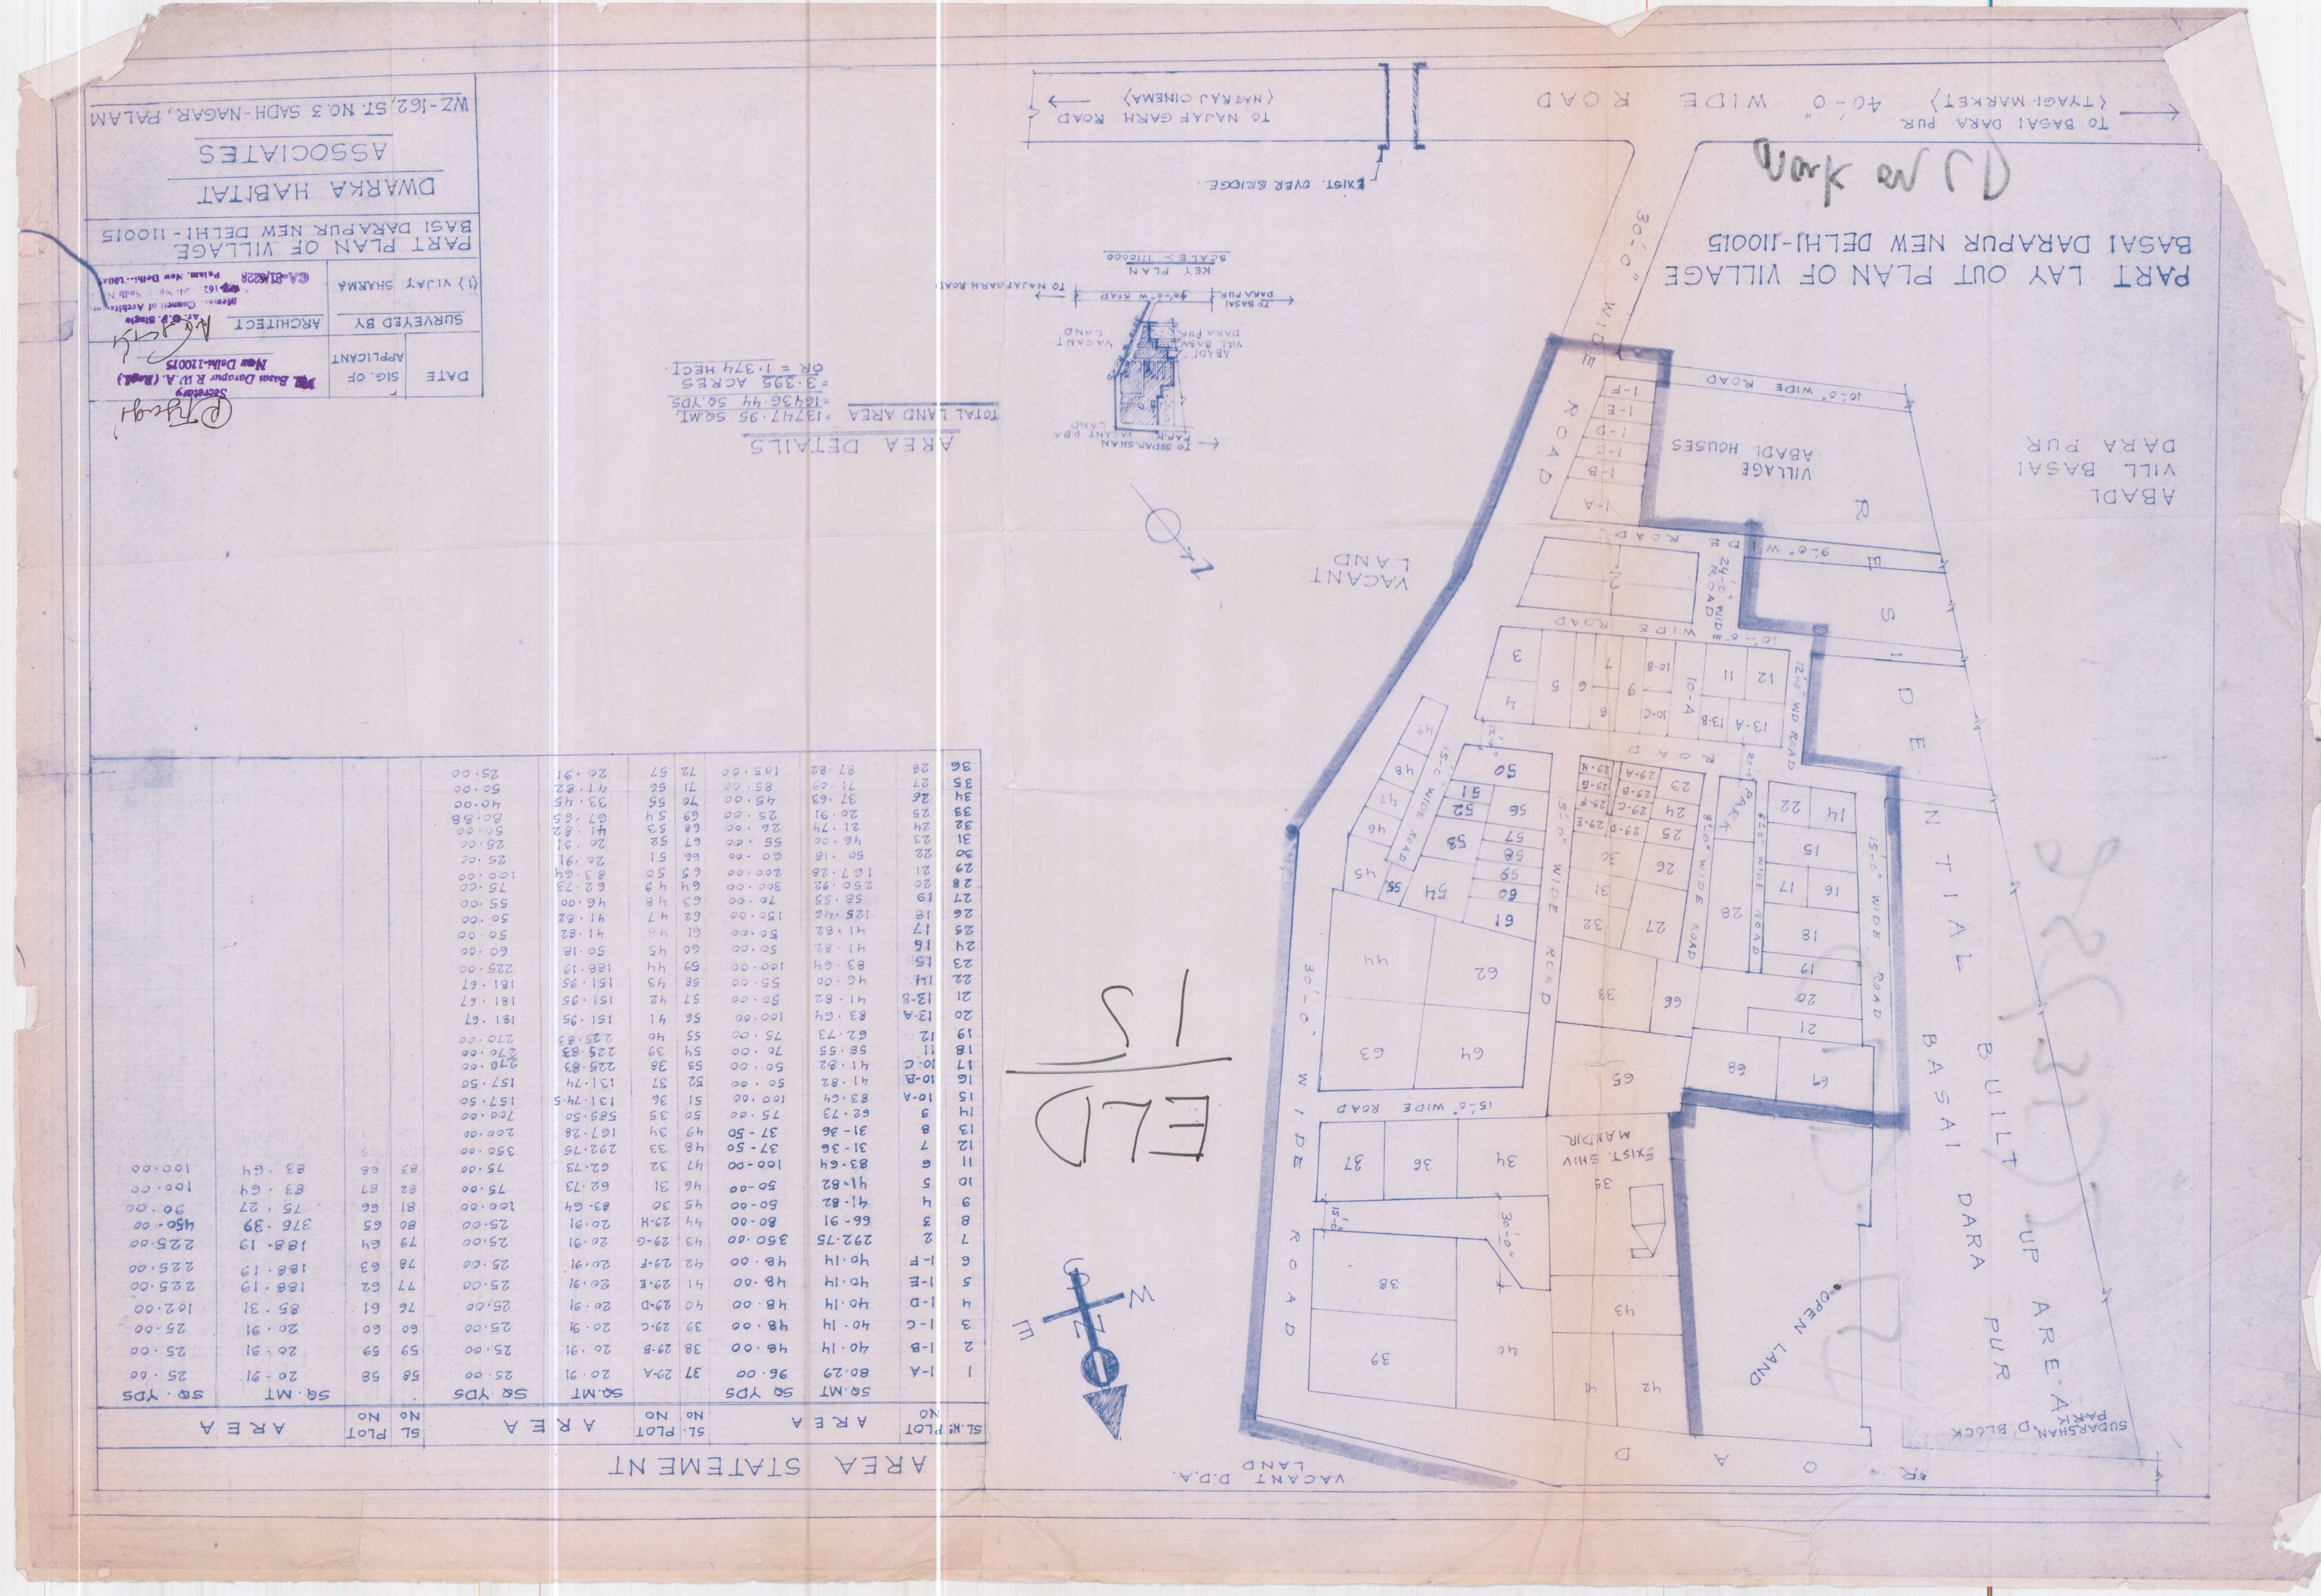 VACANT D.D.A.
LAND
SUDARSHAN 'D' BLOCK
PARK
R O A D
OPEN LAND
42
41
40
39
38
43
30'-0"
15'-0"
35
EXIST. SHIV
MANDIR
34
36
37
15'-0" WIDE ROAD
30'-0" WIDE ROAD
65
68
67
64
63
62
44
33
66
21
20
19
18
16
17
15
14
22
28
PARK
15'-0" WIDE ROAD
6'-0" WIDE ROAD
8'-0" WIDE ROAD
15'-0" WIDE ROAD
15'-0" WIDE ROAD
32
31
30
27
26
25
24
23
29-A
29-B
29-C
29-D
29-E
29-F
29-G
29-H
61
60
59
58
57
56
54
55
53
52
51
50
45
46
47
48
49
20'-0" ROAD
12'-0" WD ROAD
13-A
13-B
12
11
10-A
10-B
10-C
9
8
7
6
5
4
3
10'-0" WIDE ROAD
24'-0" WIDE
ROAD
2
9'-0" WIDE ROAD
1-A
1-B
1-C
1-D
1-E
1-F
VILLAGE
ABADI HOUSES
10'-0" WIDE ROAD
30'-0" WIDE ROAD
RESIDENTIAL BUILT UP AREA
BASAI DARA PUR
VACANT
LAND
ABADI
VILL BASAI
DARA PUR
PART LAY OUT PLAN OF VILLAGE
BASAI DARAPUR NEW DELHI-110015
TO BASAI DARA PUR
(TYAGI MARKET)
40'-0" WIDE ROAD
EXIST. OVER BRIDGE
TO NAJAFGARH ROAD
(NATRAJ CINEMA)
W
E
N
S
ELD
15
AREA STATEMENT
SL. No PLOT NO AREA SL. NO PLOT NO AREA SL NO PLOT NO AREA
SQ.MT SQ YDS SQ.MT SQ YDS SQ.MT SQ. YDS
1 1-A 80.29 96.00 37 29-A 20.91 25.00 58 58 20-91 25.00
2 1-B 40.14 48.00 38 29-B 20.91 25.00 59 59 20.91 25.00
3 1-C 40.14 48.00 39 29-C 20.91 25.00 60 60 20.91 25.00
4 1-D 40.14 48.00 40 29-D 20.91 25.00 76 61 85.31 102.00
5 1-E 40.14 48.00 41 29-E 20.91 25.00 77 62 188.19 225.00
6 1-F 40.14 48.00 42 29-F 20.91 25.00 78 63 188.19 225.00
7 2 292.75 350.00 43 29-G 20.91 25.00 79 64 188.19 225.00
8 3 66-91 80-00 44 29-H 20.91 25.00 80 65 376.39 450-00
9 4 41.82 50-00 45 30 83-64 100.00 81 66 75.27 90.00
10 5 41.82 50-00 46 31 62.73 75.00 82 67 83.64 100.00
11 6 83.64 100-00 47 32 62.73 75.00 83 68 83.64 100.00
12 7 31-36 37-50 48 33 292.75 350.00
13 8 31-36 37-50 49 34 167.28 200.00
14 9 62.73 75.00 50 35 585.50 700.00
15 10-A 83.64 100.00 51 36 131.74.5 157.50
16 10-B 41.82 50.00 52 37 131.74 157.50
17 10-C 41.82 50.00 53 38 225.83 270.00
18 11 58.55 70.00 54 39 225.83 270.00
19 12 62.73 75.00 55 40 225.83 270.00
20 13-A 83.64 100.00 56 41 151.95 181.67
21 13-B 41.82 50.00 57 42 151.95 181.67
22 14 46.00 55.00 58 43 151.95 181.67
23 15 83.64 100.00 59 44 188.19 225.00
24 16 41.82 50.00 60 45 50.18 60.00
25 17 41.82 50.00 61 46 41.82 50.00
26 18 125.46 150.00 62 47 41.82 50.00
27 19 58.55 70.00 63 48 46.00 55.00
28 20 250.92 300.00 64 49 62.73 75.00
29 21 167.28 200.00 65 50 83.64 100.00
30 22 50.18 60.00 66 51 20.91 25.00
31 23 46.00 55.00 67 52 20.91 25.00
32 24 21.74 26.00 68 53 41.82 50.00
33 25 20.91 25.00 69 54 67.65 80.88
34 26 37.63 45.00 70 55 33.45 40.00
35 27 71.09 85.00 71 56 41.82 50.00
36 28 87.82 105.00 72 57 20.91 25.00
AREA DETAILS
TOTAL LAND AREA = 13747.95 SQ.MT.
= 16436.44 SQ.YDS
= 3.395 ACRES
OR = 1.374 HECT.
TO SUDARSHAN
PARK
VACANT DDA
LAND
ABADI
VILL BASAI
DARA PUR
VACANT
LAND
TO BASAI
DARA PUR
40'-0" W ROAD
TO NAJAFGARH ROAD
KEY PLAN
SCALE:- 1:10000
DATE
SIG. OF
APPLICANT
Secretary
Basai Darapur R.W.A. (Regd.)
New Delhi-110015
SURVEYED BY
ARCHITECT
(1) VIJAY SHARMA
Council of Architecture
CA-81/6228
PART PLAN OF VILLAGE
BASI DARAPUR NEW DELHI-110015
DWARKA HABITAT
ASSOCIATES
WZ-162, ST. NO.3 SADH-NAGAR, PALAM